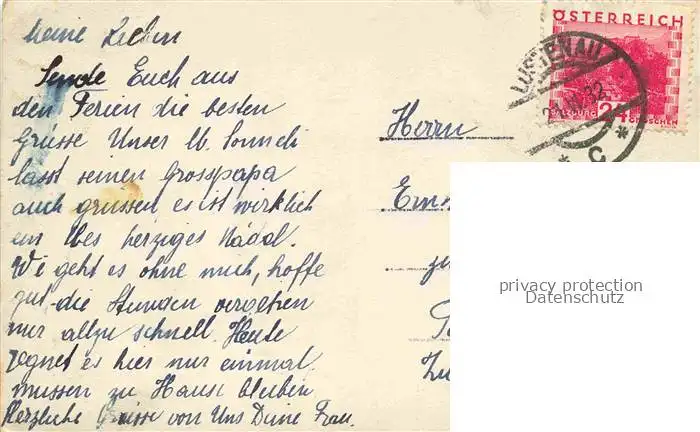 Meine Lieben
Sende Euch aus
den Ferien die besten
Grüsse Unser lb. Sonndi
lasst seinen Grosspapa
auch grüssen, es ist wirklich
ein lbes herziges Mädel.
Wie geht es ohne mich, hoffe
gut, die Stunden vergehen
nur allzu schnell. Heute
regnet es hier nur einmal
müssen zu Hause bleiben
Herzliche Grüsse von Uns Deine Frau.
Herrn
ÖSTERREICH
LUSTENAU
24
GROSCHEN
* C *
privacy protection
Datenschutz